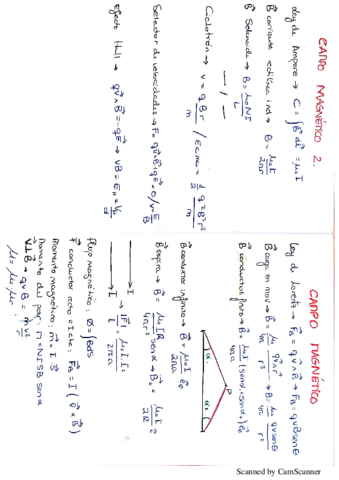 CAMPO MAGNÉTICO 2.
Ley de Ampere → C = ∫B⃗ dl⃗ = μ₀I
B⃗ corriente rectilínea ind → B = μ₀I / 2πr
B⃗ Solenoide → B = μ₀NI / L
Ciclotrón → v = qBr / m / Ecmax = 1/2 q²B²r² / m
Selector de velocidades → F = qv⃗∧B⃗ + qE⃗ = 0 / v = E/B
Efecto Hall → qv⃗∧B⃗ = -qE⃗ → vB = E_H = V_H / d
CAMPO MAGNÉTICO
Ley de Lorentz → F⃗_B = qv⃗∧B⃗ → F_B = qvB senθ
B⃗ carga en mov → B⃗ = μ₀/4π qv⃗∧r⃗ / r³ → B = μ₀/4π qv senθ / r²
B⃗ conductor finito → B⃗ = μ₀I/4πa (senα₁ + senα₂) e⃗₀
P
α₁
α₂
B⃗ conductor infinito → B⃗ = μ₀I / 2πa e⃗₀
B⃗ espira → B⃗ = μ₀IR / 4πr² senα → B₀ = μ₀I / 2R
I
I
→ |F⃗| / l = μ₀I₁I₂ / 2πa
flujo magnético: Ø = ∫B⃗dS
F⃗ conductor recto e I cte: F⃗_B = I (l⃗ × B⃗)
Momento magnético: m⃗ = I·S⃗
Momento del par: M = NISB senα
v⃗ ⊥ B⃗ → qvB = mv² / r
μ = μ₀μr
Scanned by CamScanner